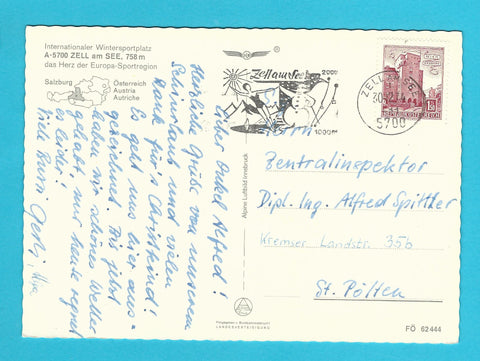 Internationaler Wintersportplatz
A-5700 ZELL am SEE, 758 m
das Herz der Europa-Sportregion
Salzburg
Österreich
Austria
Autriche
Lieber Onkel Alfred!
Herzliche Grüße von unserem
Schiurlaub und vielen
Dank für's Christkind!
Es geht uns hier aus-
gezeichnet. Bis jetzt
haben wir schönes Wetter
gehabt, nur heute regnet
es leider!
Viele Bussi, Gerli
Alpine Luftbild Innsbruck
Zell am See
2000
1000m
ZELL AM SEE
5700
REPUBLIK ÖSTERREICH
Herrn
Zentralinspektor
Dipl. Ing. Alfred Spittler
Kremser Landstr. 35b
St. Pölten
LANDESVERTEIDIGUNG
FÖ 62444